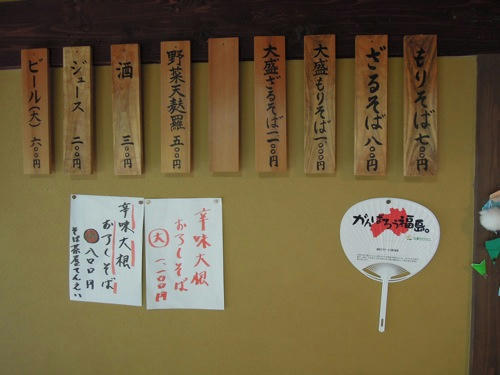 もりそば 七〇〇円
ざるそば 八〇〇円
大盛もりそば 一、〇〇〇円
大盛ざるそば 一一〇〇円
野菜天麩羅 五〇〇円
酒 三〇〇円
ジュース 二〇〇円
ビール(大) 六〇〇円
辛味大根
おろしそば
大 一、一〇〇円
辛味大根
おろしそば
八〇〇円
そば茶屋
がんばろう福島。